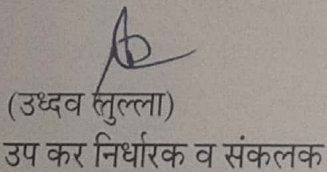 (उध्दव लुल्ला)
उप कर निर्धारक व संकलक